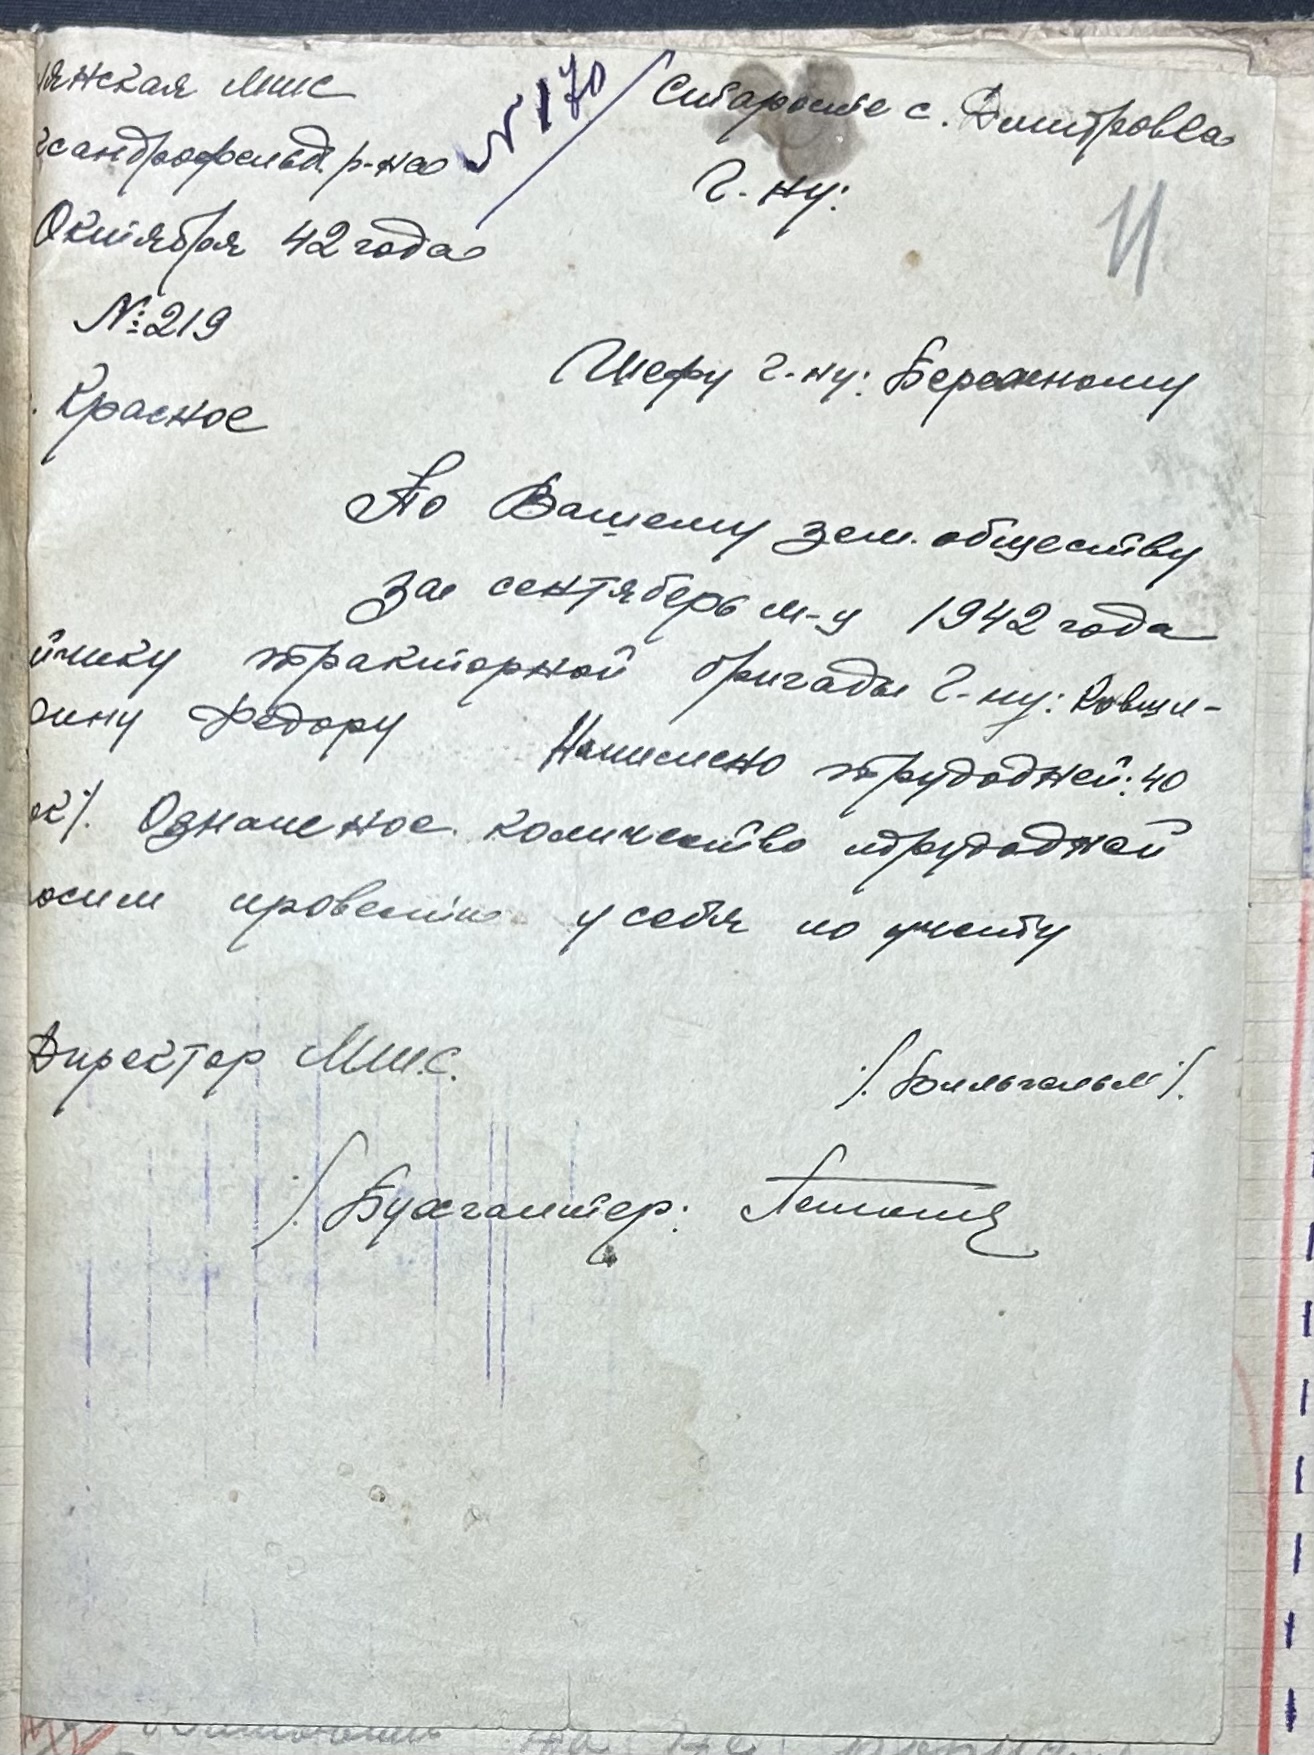 янская МТС
ксандрофельд. р-на
Октября 42 года
№ 219
Красное
№ 170
Старосте с. Дмитровка
г-ну:
11
Шефу г-ну: Бережному
По Вашему зем. обществу
за сентябрь м-ц 1942 года
йчику тракторной бригады г-ну: Ковши-
рину Федору Начислено трудодней: 40
ок/. Означеное количество трудодней
росим провести у себя по учету
Директор МТС.
/. /.
/. Бухгалтер:
на